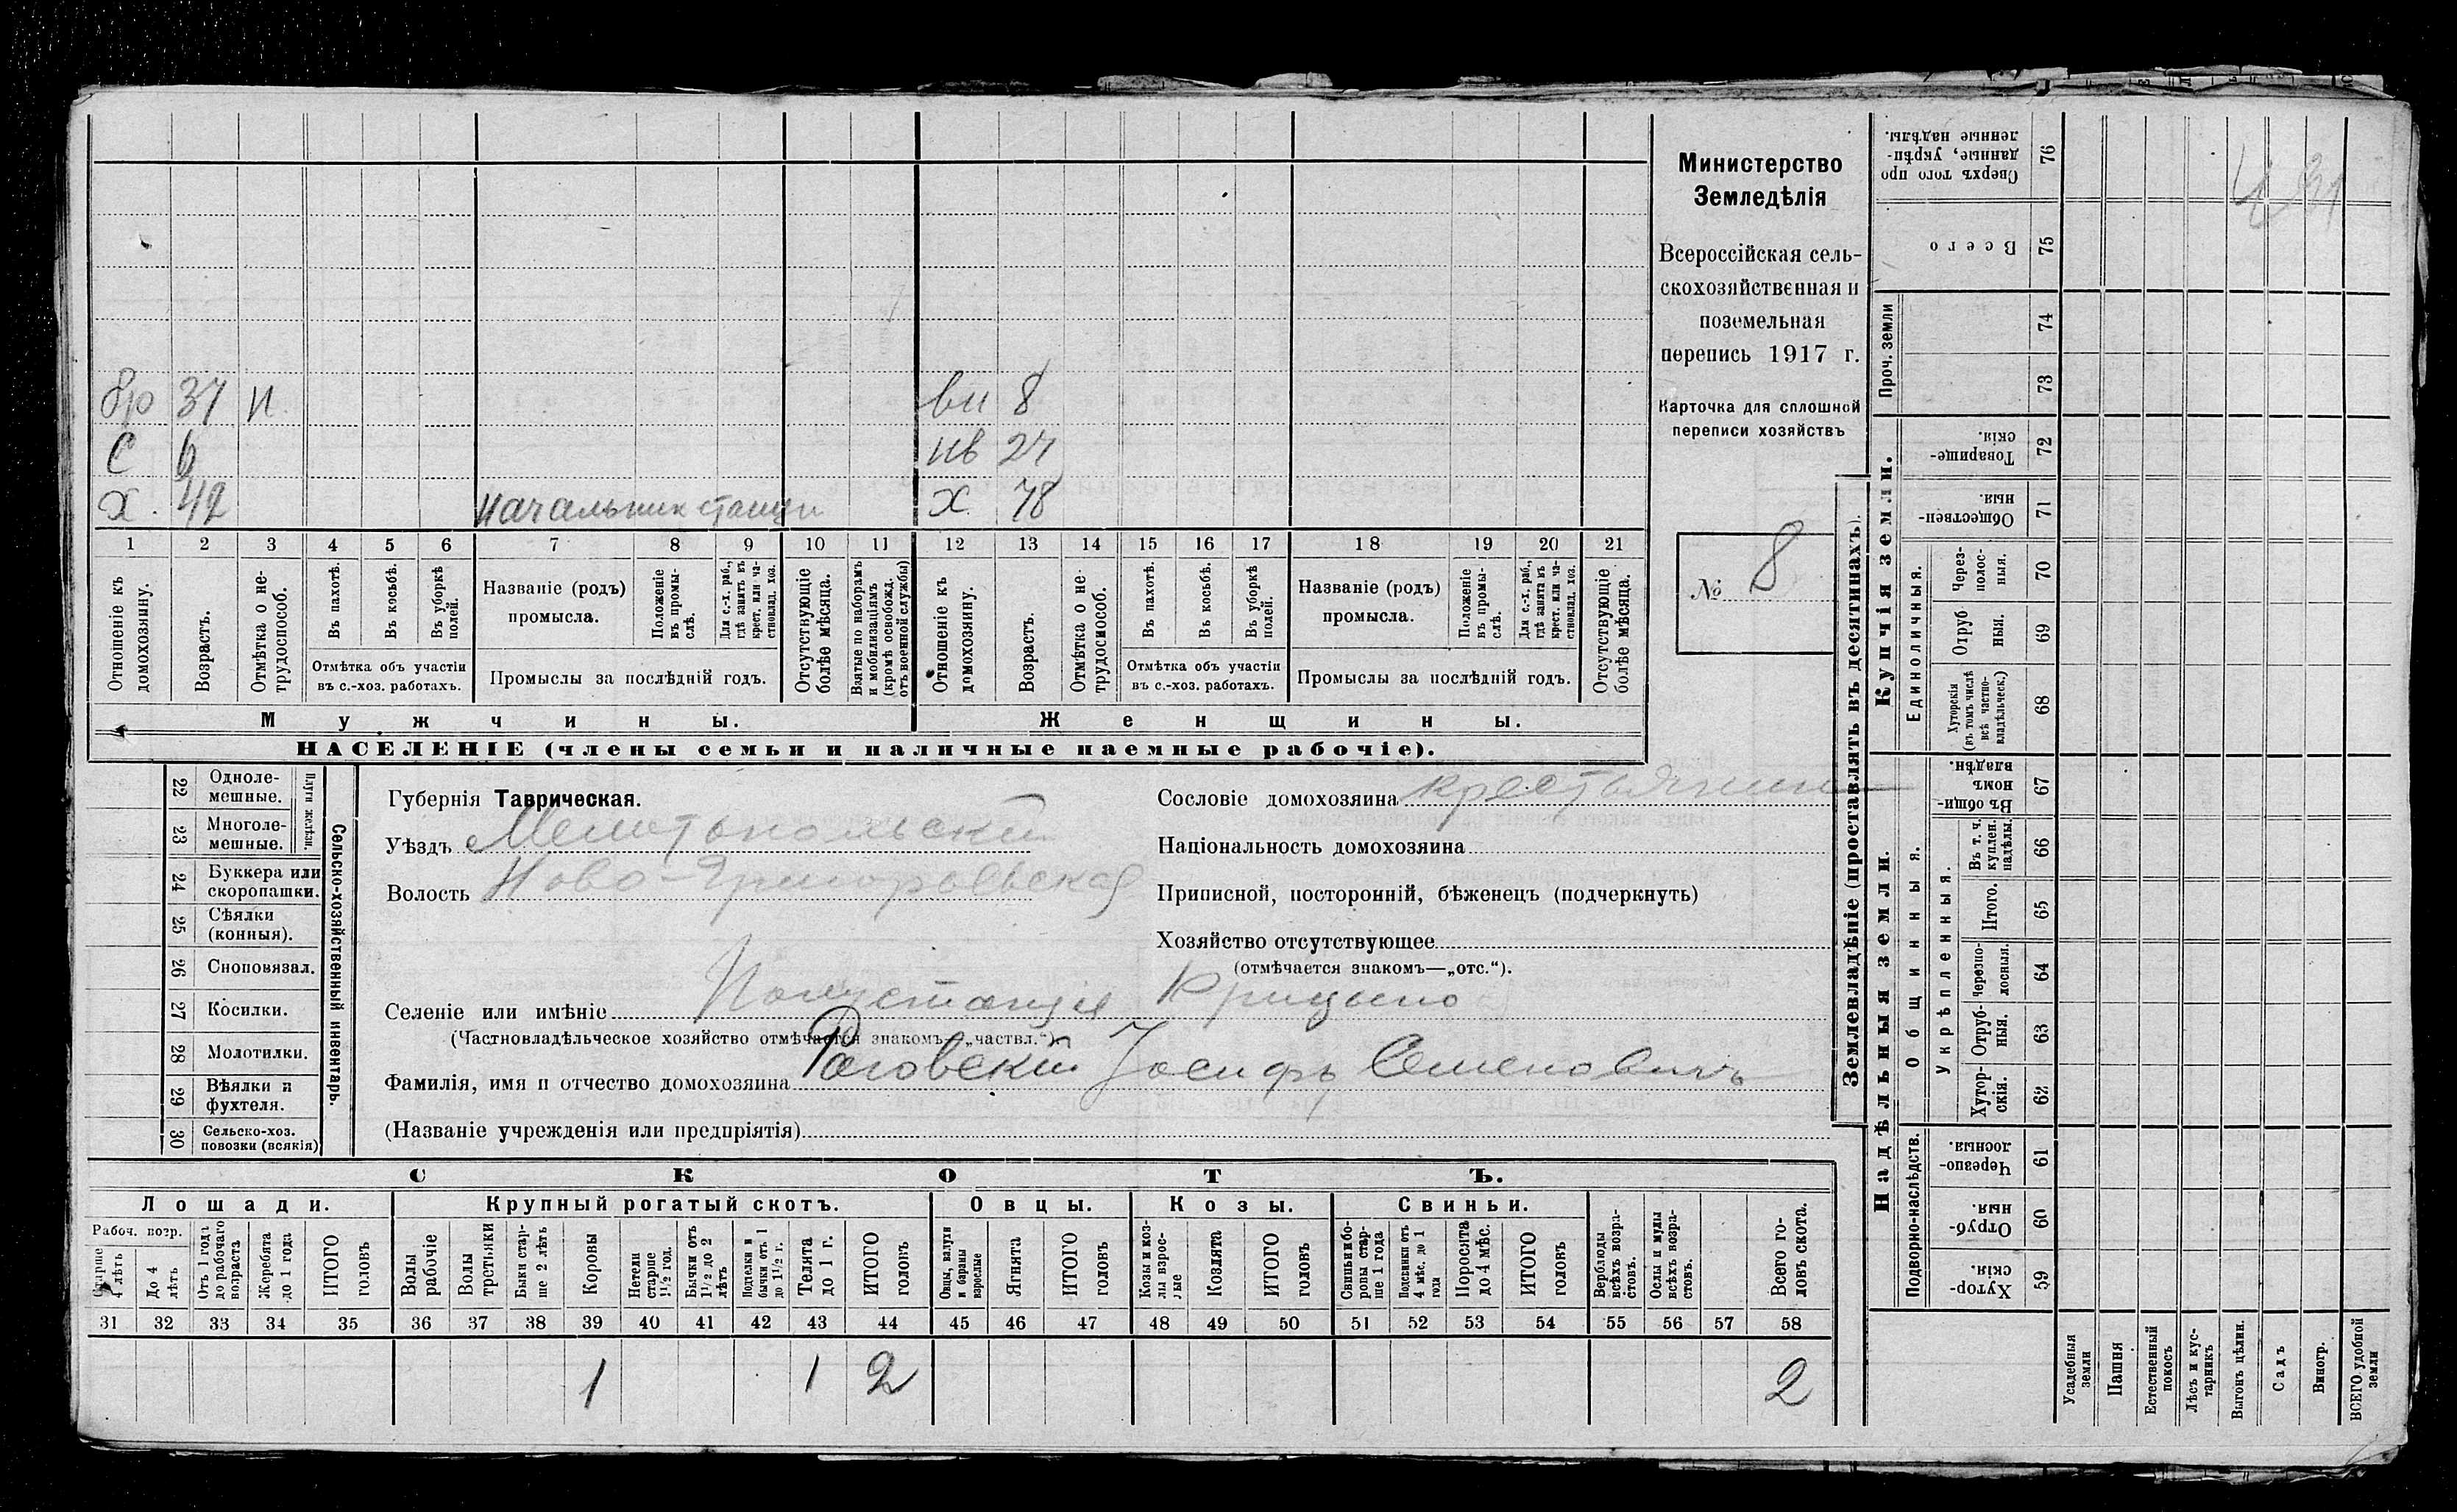 бр 37 н. вн 8
С 6 нв 24
Х. 42 начальник станци Х 78
1 2 3 4 5 6 7 8 9 10 11 12 13 14 15 16 17 18 19 20 21
Отношеніе къ домохозяину.
Возрастъ.
Отмѣтка о нетрудоспособ.
Въ пахотѣ.
Въ косьбѣ.
Въ уборкѣ полей.
Отмѣтка объ участіи
въ с.-хоз. работахъ.
Названіе (родъ)
промысла.
Положеніе въ промыслѣ.
Для с.-х. раб., гдѣ занятъ въ крест. или частновлад. хоз.
Промыслы за послѣдній годъ.
Отсутствующіе болѣе мѣсяца.
Взятые по наборамъ и мобилизаціямъ (кромѣ освобожд. отъ военной службы)
Отношеніе къ домохозяину.
Возрастъ.
Отмѣтка о нетрудоспособ.
Въ пахотѣ.
Въ косьбѣ.
Въ уборкѣ полей.
Отмѣтка объ участіи
въ с.-хоз. работахъ.
Названіе (родъ)
промысла.
Положеніе въ промыслѣ.
Для с.-х. раб., гдѣ занята въ крест. или частновлад. хоз.
Промыслы за послѣдній годъ.
Отсутствующіе болѣе мѣсяца.
Мужчины. Женщины.
НАСЕЛЕНІЕ (члены семьи и наличные наемные рабочіе).
Министерство
Земледѣлія
Всероссійская сель-
скохозяйственная и
поземельная
перепись 1917 г.
Карточка для сплошной
переписи хозяйствъ
№ 8
22 Одноле-
мешные.
23 Многоле-
мешные.
Плуги желѣзн.
24 Буккера или
скоропашки.
25 Сѣялки
(конныя).
26 Сноповязал.
27 Косилки.
28 Молотилки.
29 Вѣялки и
фухтеля.
30 Сельско-хоз.
повозки (всякія)
Сельско-хозяйственный инвентарь.
Губернія Таврическая.
Уѣздъ Мелитопольский
Волость Ново-Григорьевская
Сословіе домохозяина крестьянин
Національность домохозяина
Приписной, посторонній, бѣженецъ (подчеркнуть)
Хозяйство отсутствующее
(отмѣчается знакомъ—„отс.“).
Селеніе или имѣніе
(Частновладѣльческое хозяйство отмѣчается знакомъ—„частвл.“).
Фамилія, имя и отчество домохозяина Роговский Іосифъ Семеновичъ
(Названіе учрежденія или предпріятія)
СКОТЪ.
Лошади. Крупный рогатый скотъ. Овцы. Козы. Свиньи.
Рабоч. возр.
Старше 4 лѣтъ
До 4 лѣтъ
Отъ 1 года до рабочаго возраста
Жеребята до 1 года
ИТОГО головъ
Волы рабочіе
Волы третьяки
Быки старше 2 лѣтъ
Коровы
Нетели старше 1½ год.
Бычки отъ 1½ до 2 лѣтъ
Подтелки и бычки отъ 1 до 1½ г.
Телята до 1 г.
ИТОГО головъ
Овцы, валухи и бараны взрослые
Ягнята
ИТОГО головъ
Козы и козлы взрослые
Козлята
ИТОГО головъ
Свиньи боровы старше 1 года
Подсвинки отъ 4 мѣс. до 1 года
Поросята до 4 мѣс.
ИТОГО головъ
Верблюды всѣхъ возрастовъ.
Ослы и мулы всѣхъ возрастовъ.
Всего головъ скота.
31 32 33 34 35 36 37 38 39 40 41 42 43 44 45 46 47 48 49 50 51 52 53 54 55 56 57 58
1 1 2 2
Землевладѣніе (проставлять въ десятинахъ).
Надѣльныя земли. Купчія земли.
Подворно-наслѣдств.
Общинныя.
Укрѣпленныя.
Единоличныя.
Проч. земли
76 Сверхъ того проданные, укрѣпленные надѣлы.
75 Всего
74
73
72 Товарищескія.
71 Общественныя.
70 Черезполосныя.
69 Отрубныя.
68 Хуторскія (въ томъ числѣ всѣ частновладѣльческ.)
67 Въ общинномъ владѣн.
66 Въ т. ч. куплен. надѣлы.
65 Итого.
64 Черезполосныя.
63 Отрубныя.
62 Хуторскія.
61 Черезполосныя.
60 Отрубныя.
59 Хуторскія.
Усадебныя земли
Пашня
Естественный покосъ
Лѣсъ и кустарникъ
Выгонъ цѣлин.
Садъ
Виногр.
ВСЕГО удобной земли